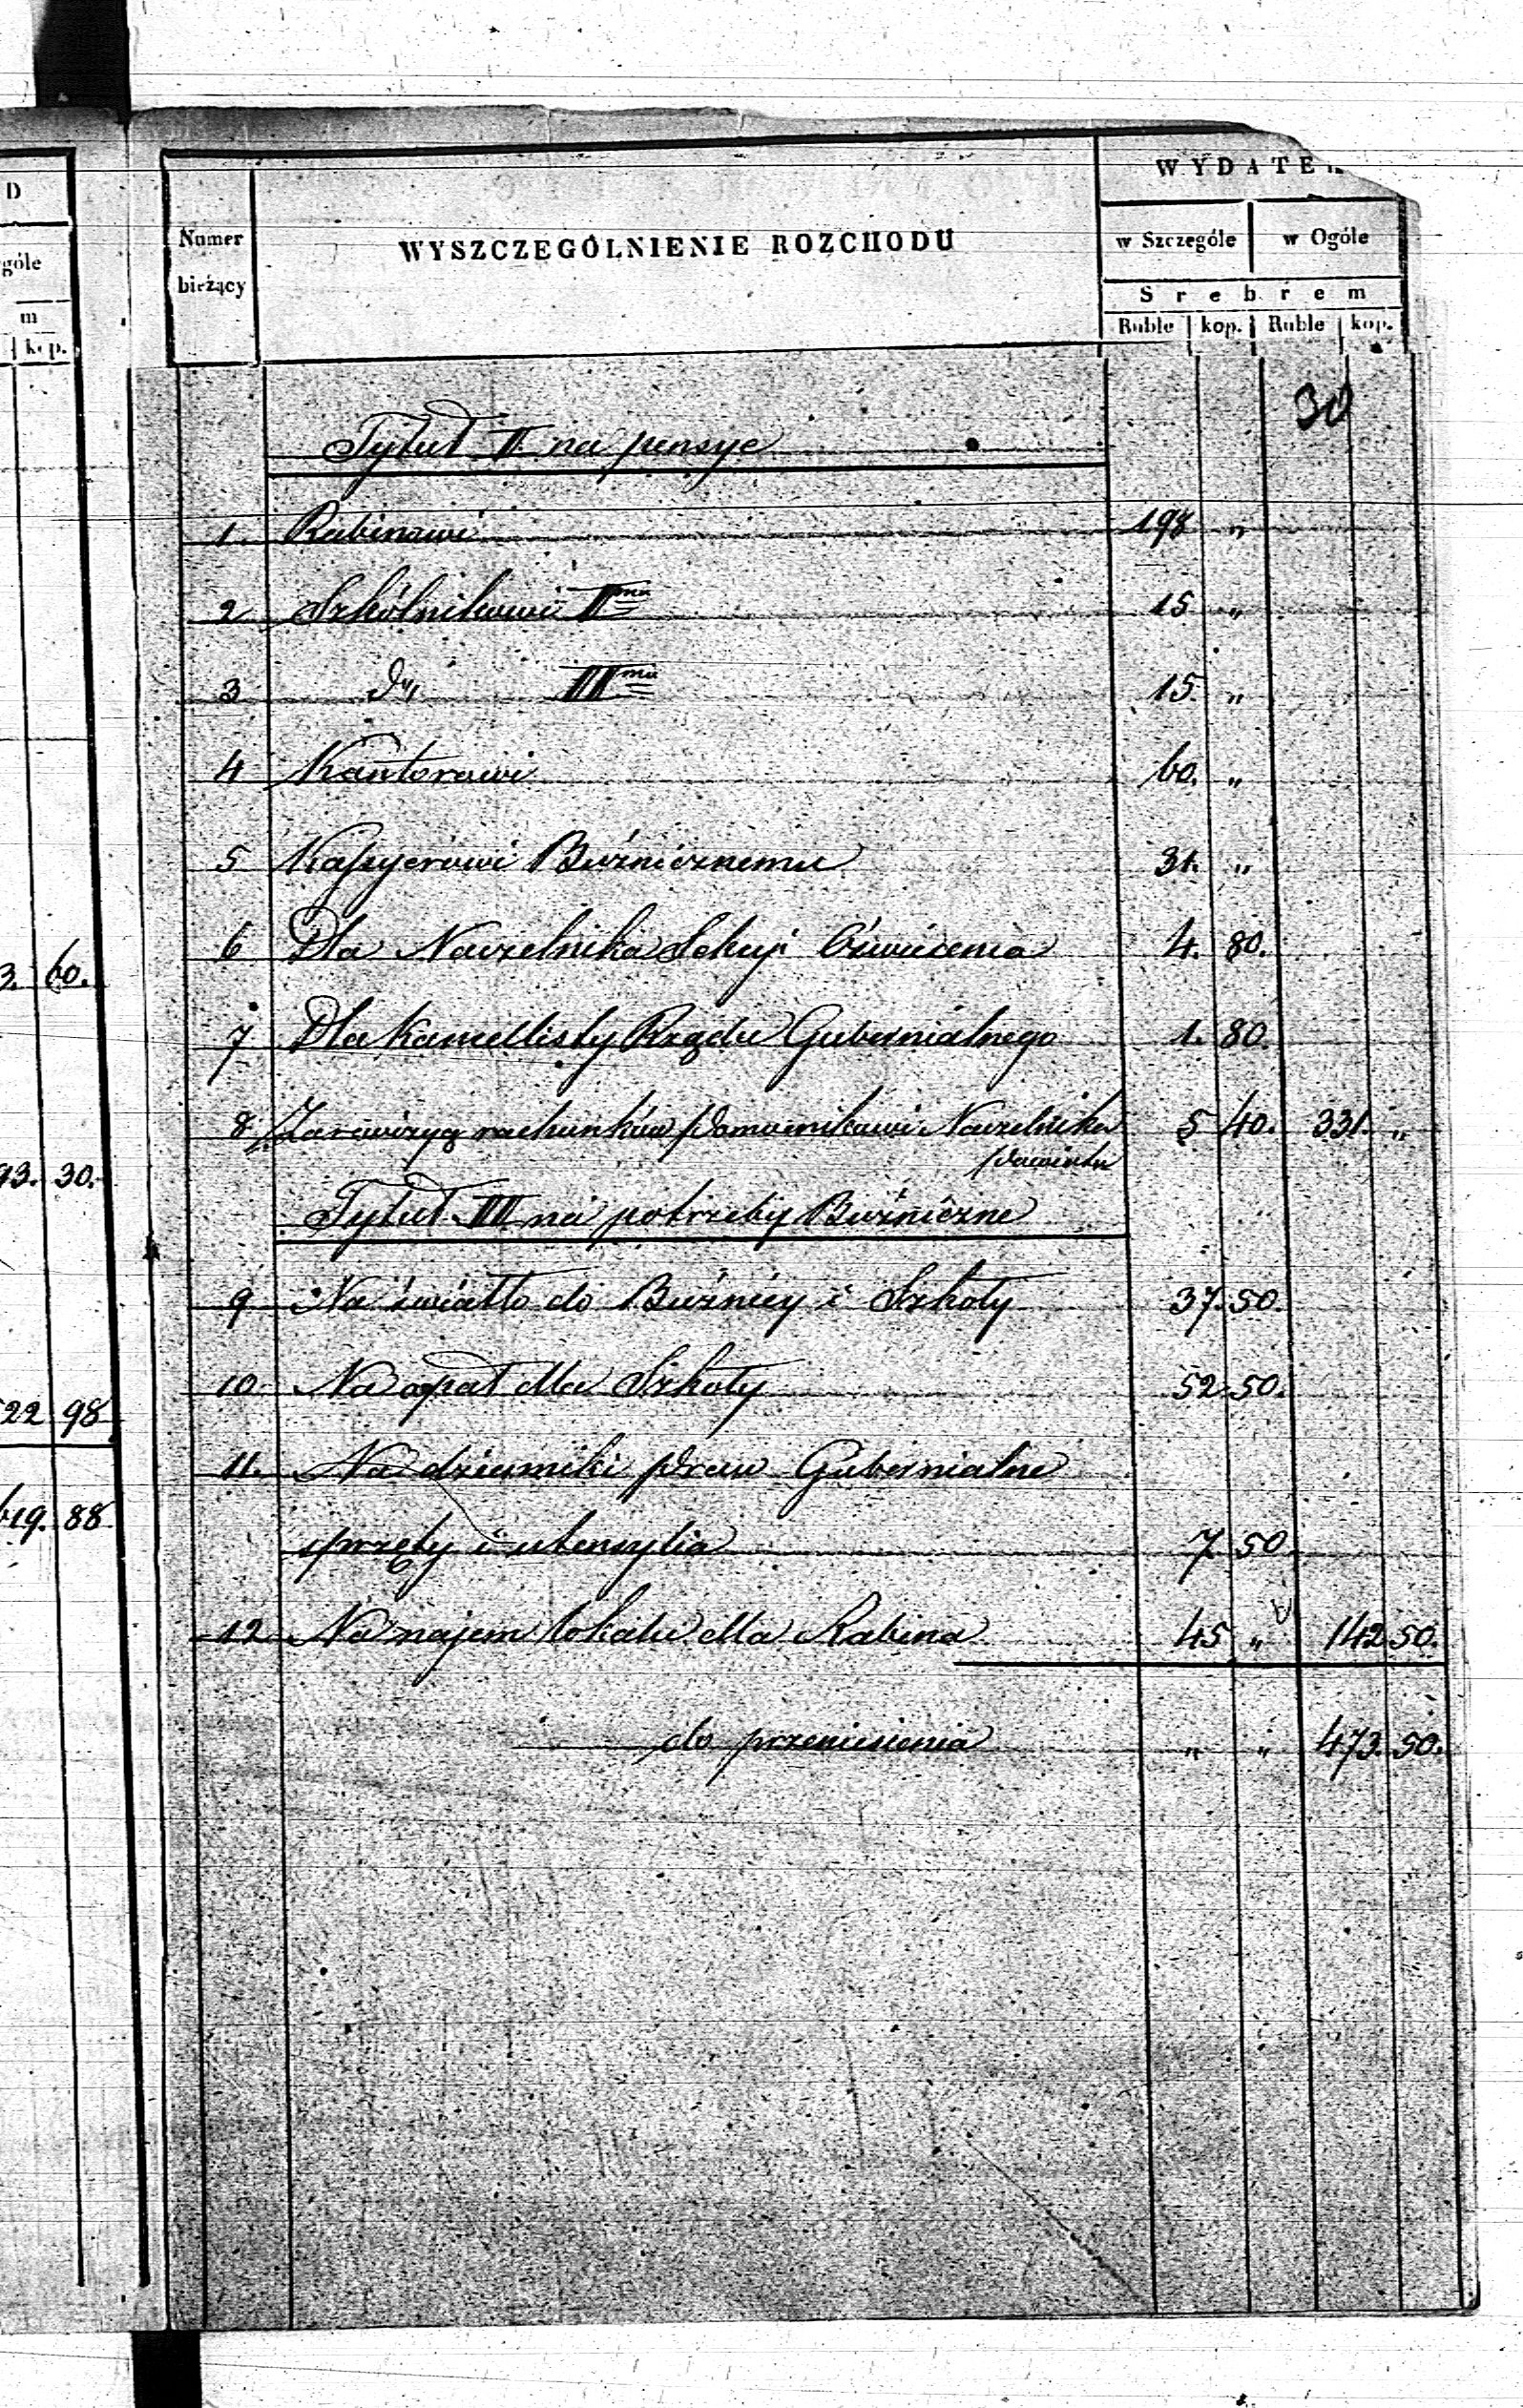 D
góle
m
kop.
3. 60.
93. 30.
22 98
619. 88
WYDATE
Numer bieżący
WYSZCZEGÓLNIENIE ROZCHODU
w Szczególe w Ogóle
Srebrem
Ruble kop. Ruble kop.
30
Tytuł II na pensye
1. Rabinowi 198 "
2 Szkólnikowi I 15 "
3 d° II 15. "
4 Kantorowi 60. "
5 Kassyerowi Bużnicznemu 31. "
6 Dla Naczelnika Sekcyi Oświecenia 4. 80.
7 Dla Kancellisty Rządu Gubernialnego 1. 80.
8 Za rewizyą rachunków Pomocnikowi Naczelnika 5 40. 331. "
Powiatu
Tytuł III na potrzeby Bużniczne
9 Na światło do Bużnicy i Szkoły 37. 50.
10 Na opał dla Szkoły 52 50.
11. Na dzienniki praw Gubernialne
sprzęty i utensylia 7 50.
12 Na najem lokalu dla Rabina 45 " 142 50.
do przeniesienia " " 473. 50.